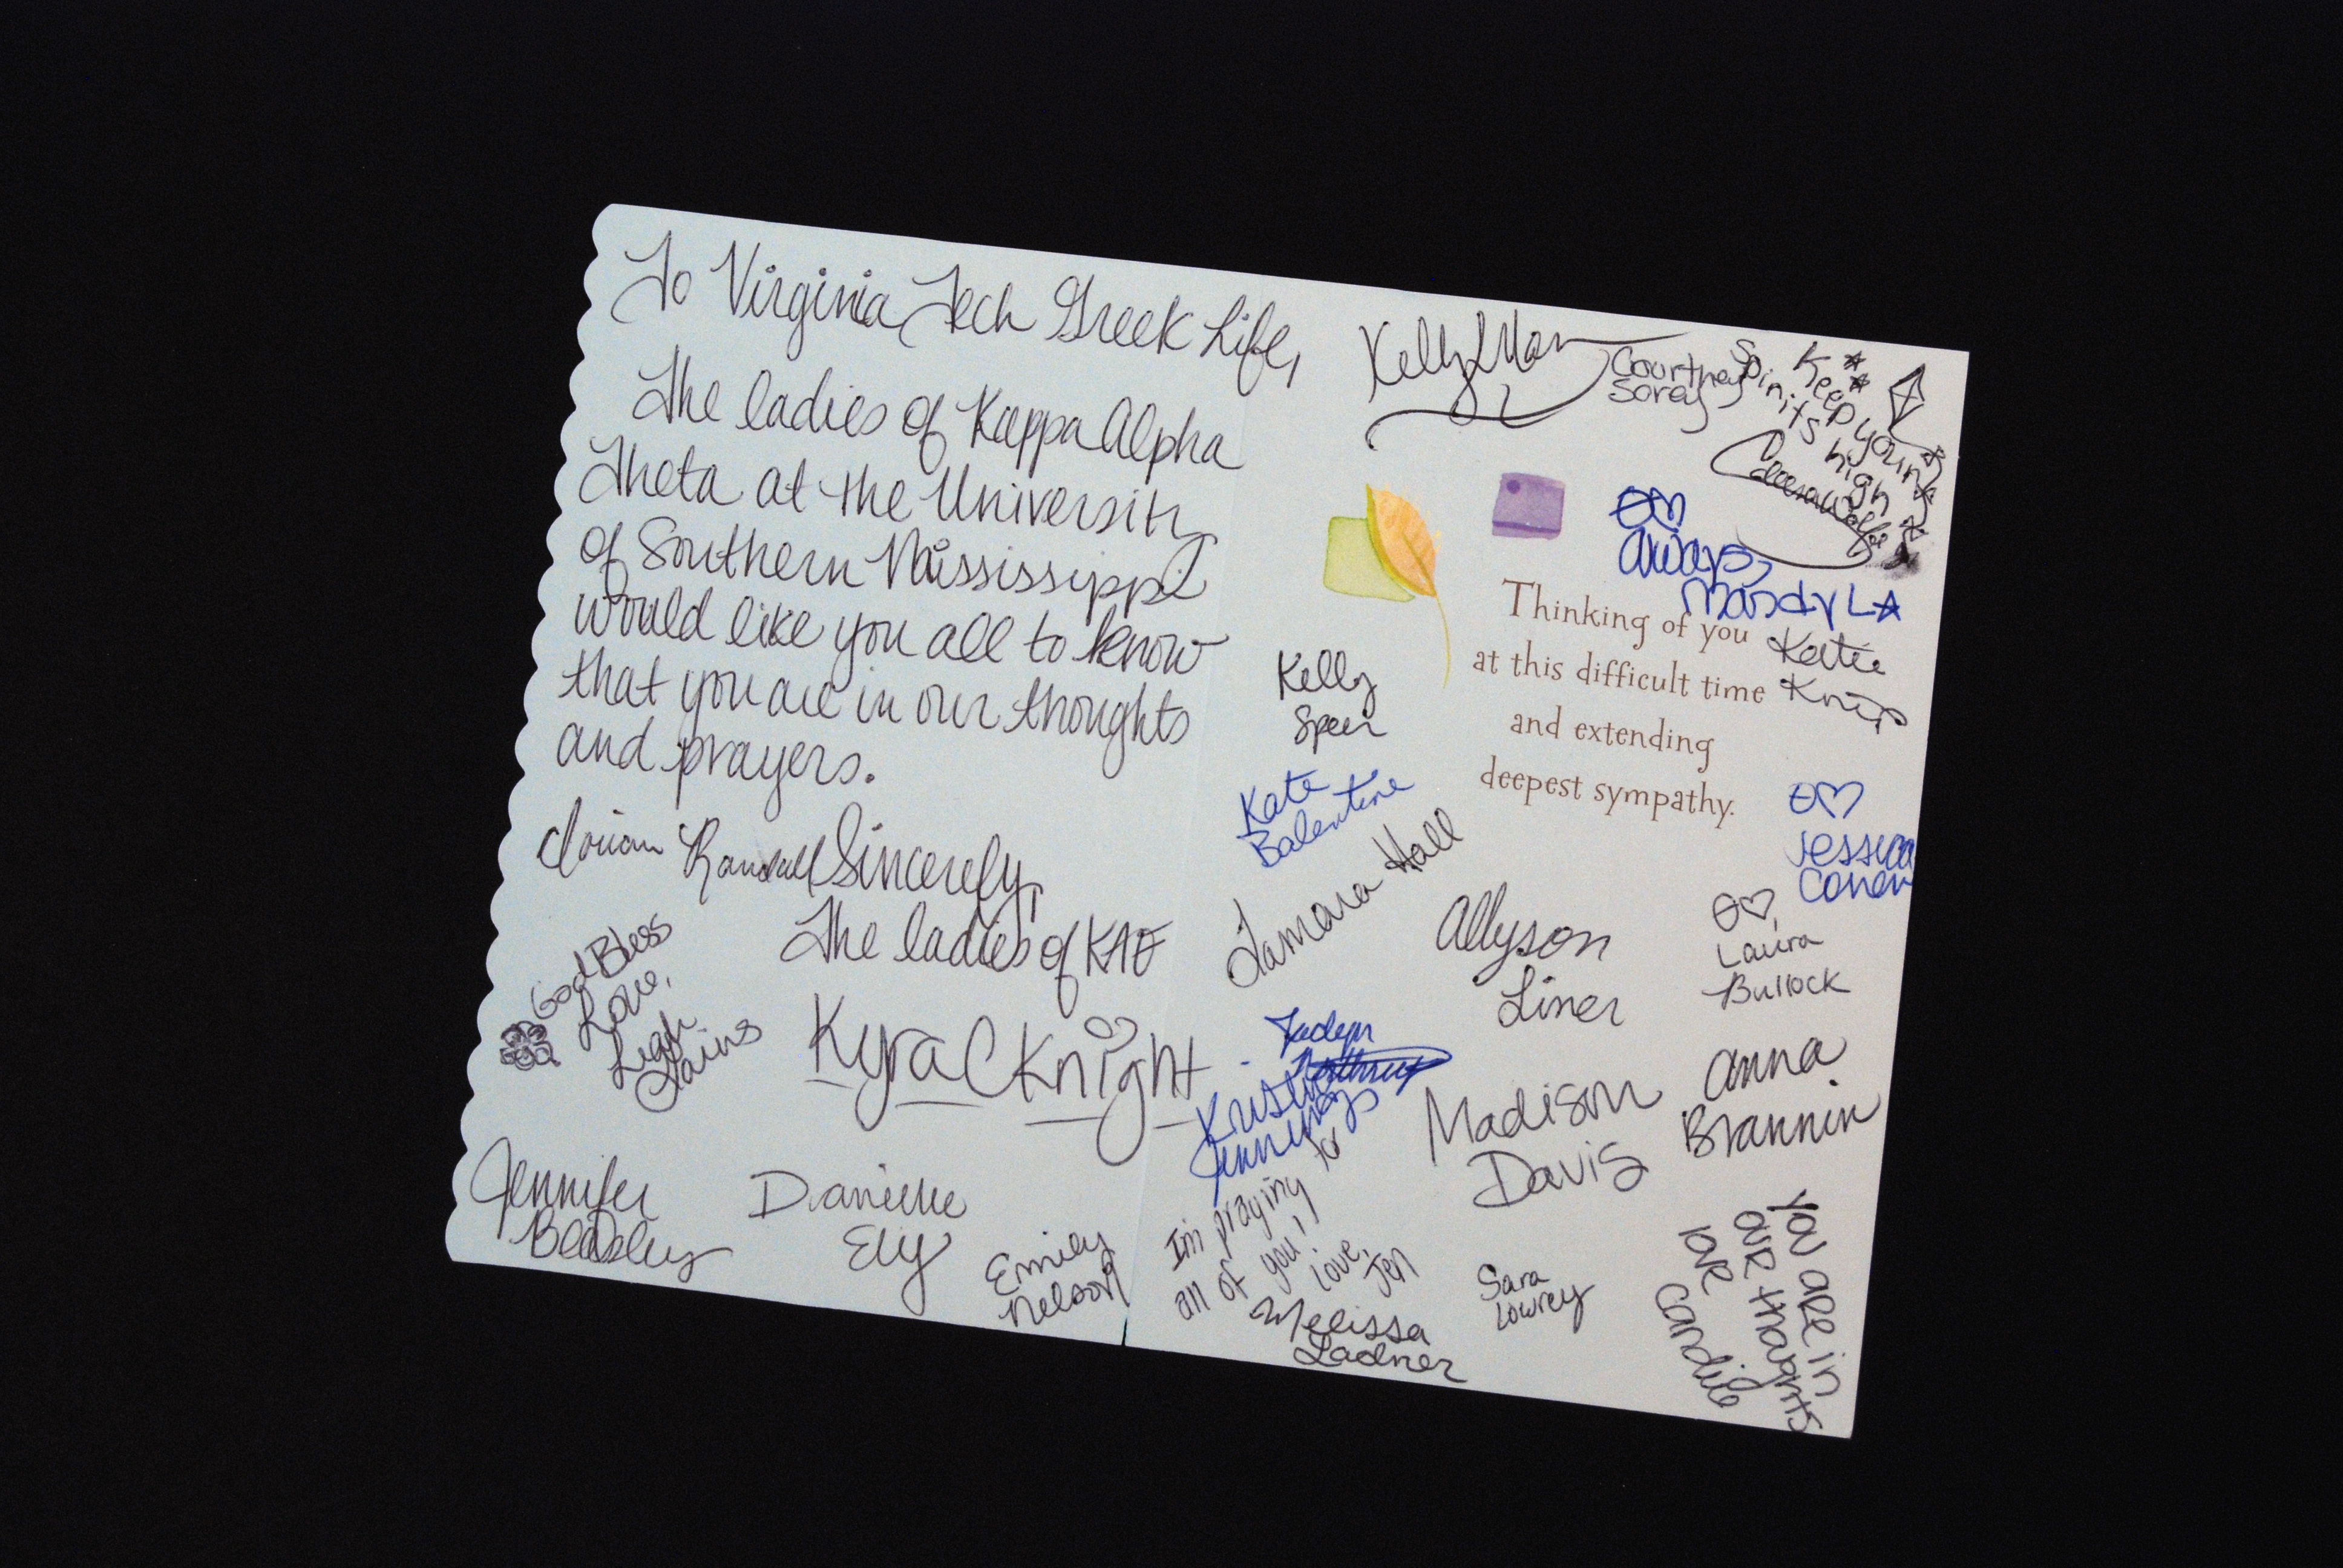 To Virginia Tech Greek Life,
The ladies of Kappa Alpha
Theta at the University
of Southern Mississippi
would like you all to know
that you are in our thoughts
and prayers.
Randall
Sincerely,
The ladies of KAΘ
God Bless
Love,
Leah
Kyra C Knight
Jennifer
Beasley
Danielle
Ely
Emily
Nelson
Kelly
Courtney
Sorey
Keep your
Spirits high
Θ♡
Always,
Mandy L
Thinking of you
at this difficult time
and extending
deepest sympathy.
Katie
Kelly
Speer
Kate
Balentine
Θ♡
Jessica
Θ♡,
Laura
Bullock
Tamara Hall
Allyson
Liner
Kristin
Jennings
Madison
Davis
Anna
Brannin
I'm praying for
all of you!
Love,
Jen
Melissa
Ladner
Sara
Lowrey
You are in
our thoughts
love
Candice